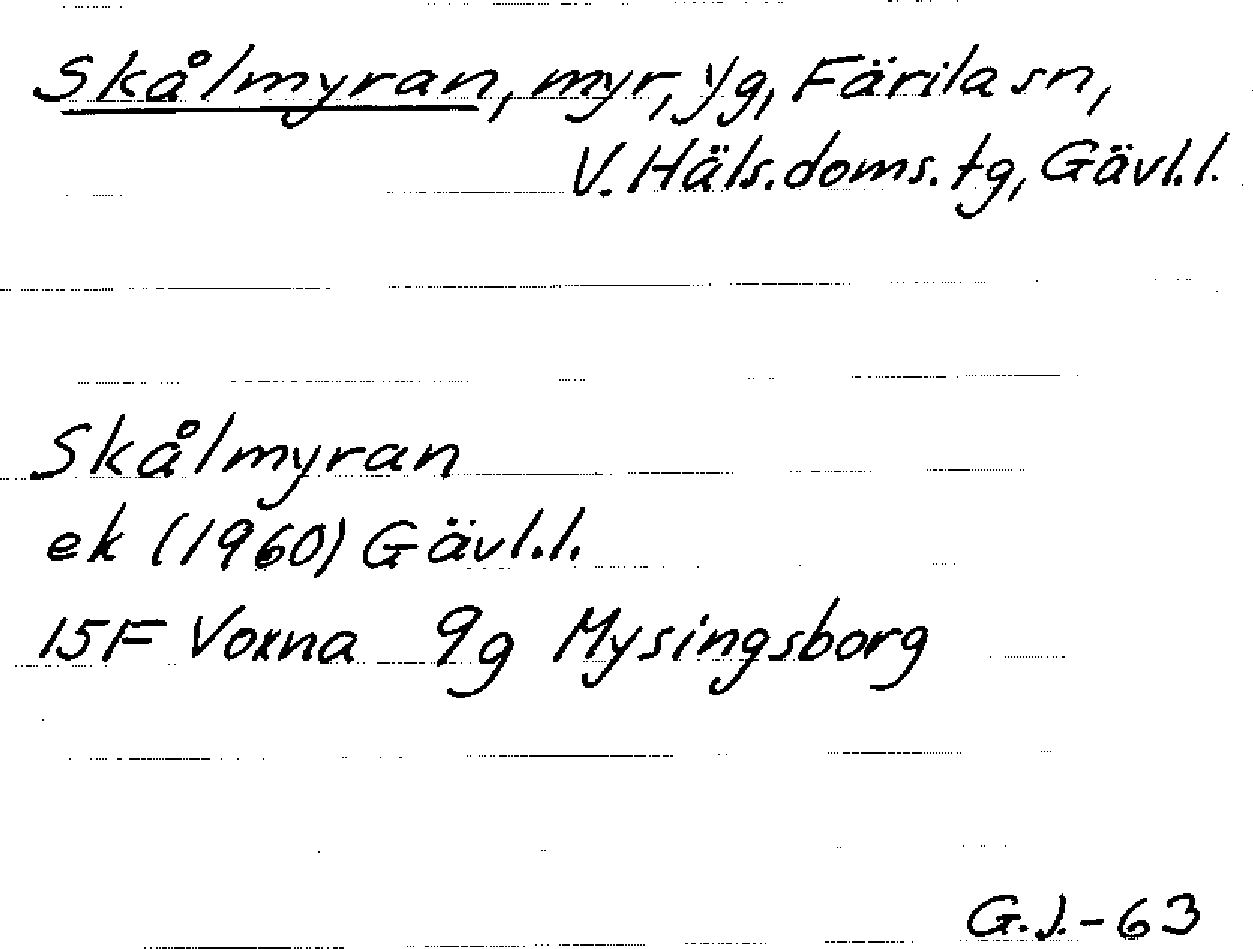 Skålmyran, myr, yg, Färila sn,
V. Häls. doms. tg, Gävl.l.
Skålmyran
ek (1960) Gävl.l.
15F Voxna 9g Mysingsborg
G.J.-63